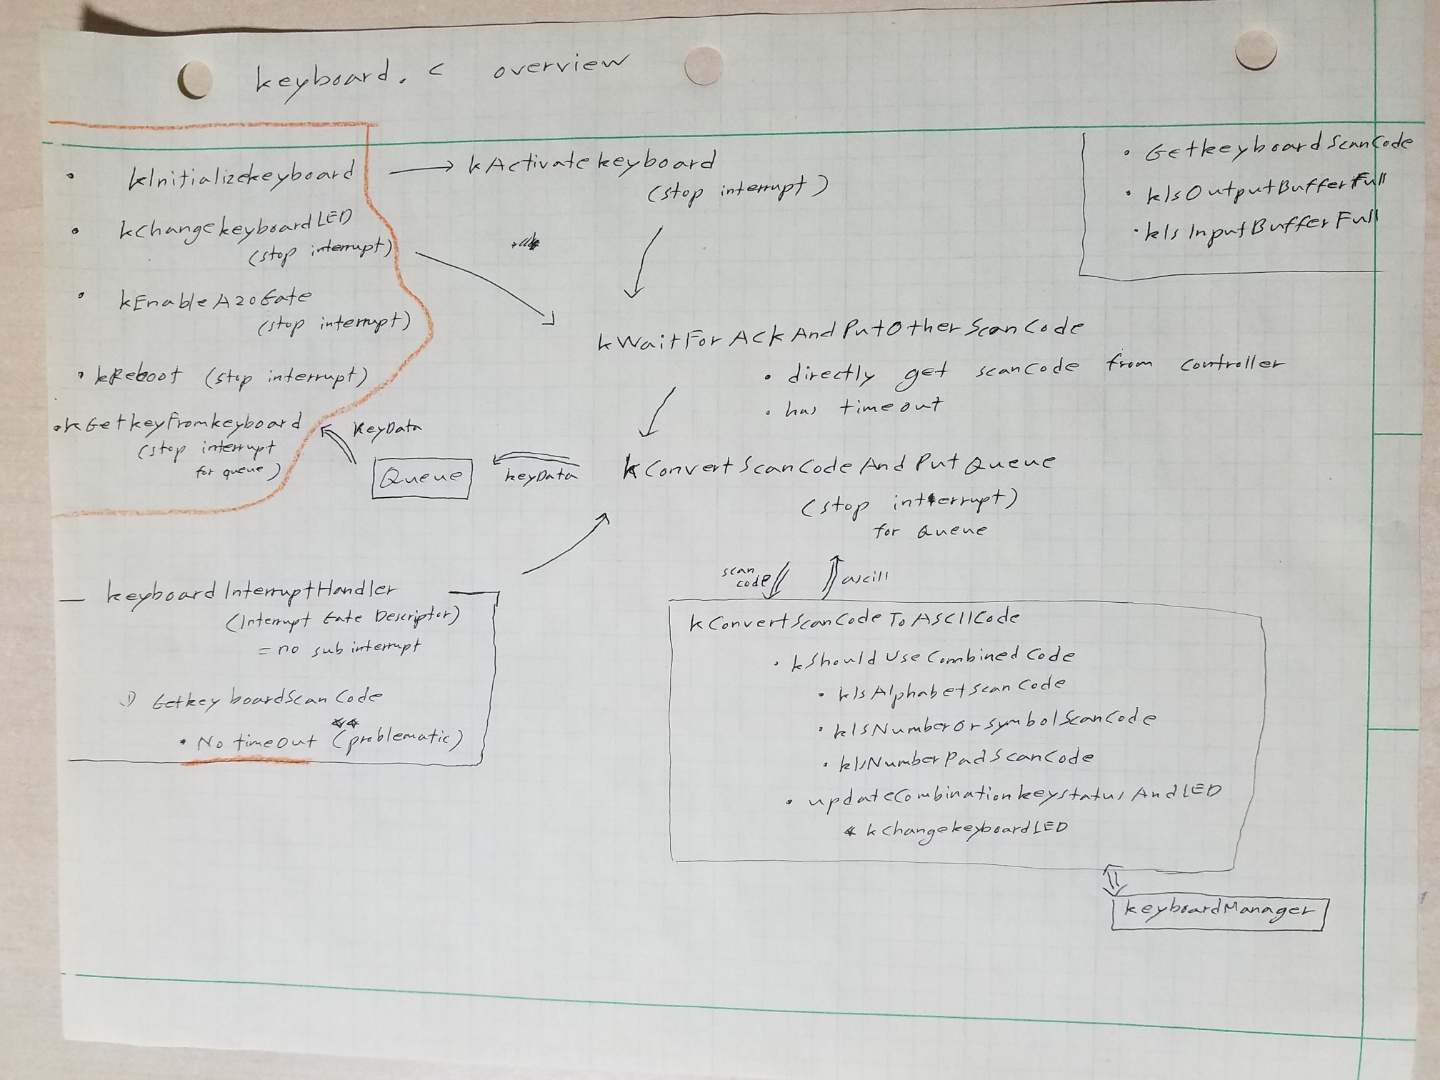 keyboard.c overview
• kInitializekeyboard
kActivatekeyboard
(stop interrupt)
• kChangekeyboardLED
(stop interrupt)
• kEnableA20Gate
(stop interrupt)
• kReboot (stop interrupt)
• kGetkeyFromkeyboard
(stop interrupt
for queue)
KeyData
Queue
keyData
• GetkeyboardScanCode
• kIsOutputBufferFull
• kIsInputBufferFull
kWaitForAckAndPutOtherScanCode
• directly get scancode from controller
• has timeout
kConvertScanCodeAndPutQueue
(stop interrupt)
for Queue
scan
code
ascill
keyboardInterruptHandler
(Interrupt Gate Descriptor)
= no sub interrupt
1) GetkeyboardScanCode
• No timeOut (problematic)
kConvertScanCodeToASCIICode
• kShouldUseCombinedCode
• kIsAlphabetScanCode
• kIsNumberOrSymbolScanCode
• kIsNumberPadScanCode
• updateCombinationkeystatusAndLED
* kChangekeyboardLED
keyboardManager